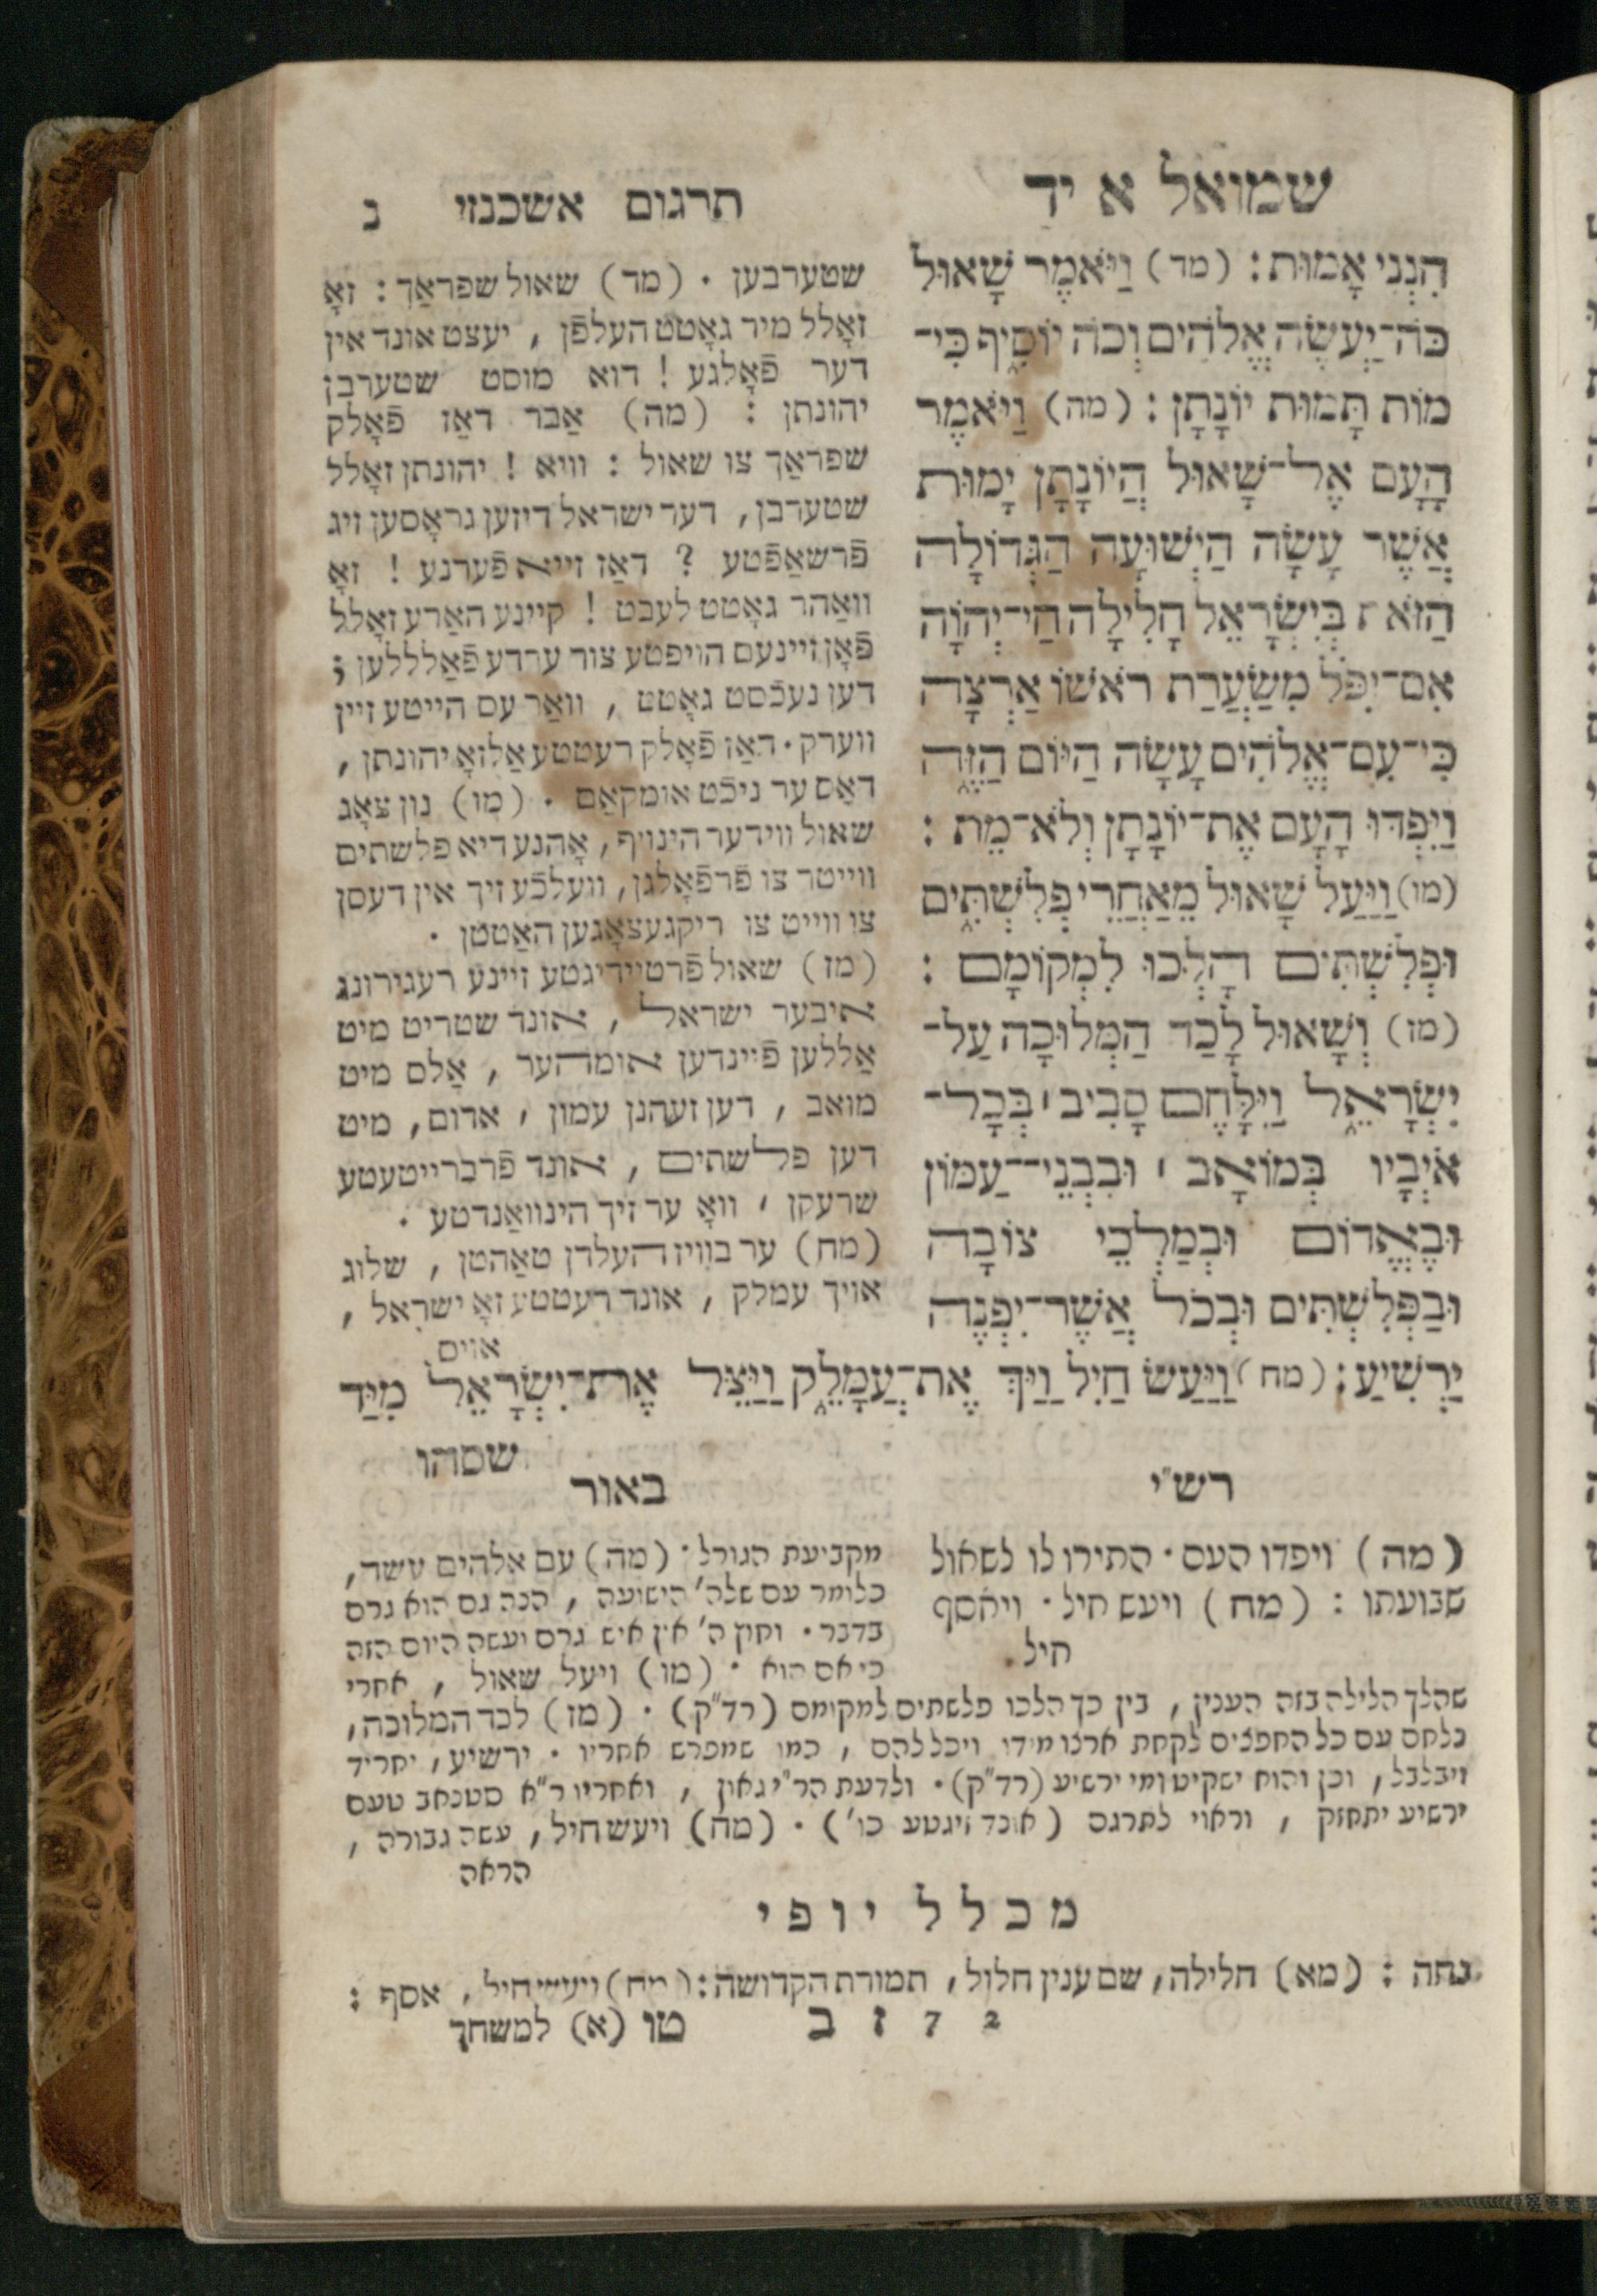 שמואל א יד
תרגום אשכנזי נ
הִנְנִי אָמוּת: (מד) וַיֹּאמֶר שָׁאוּל
כֹּה־יַעֲשֶׂה אֱלֹהִים וְכֹה יוֹסִיף כִּי־
מוֹת תָּמוּת יוֹנָתָן: (מה) וַיֹּאמֶר
הָעָם אֶל־שָׁאוּל הֲיוֹנָתָן יָמוּת
אֲשֶׁר עָשָׂה הַיְשׁוּעָה הַגְּדוֹלָה
הַזֹּאת בְּיִשְׂרָאֵל חָלִילָה חַי־יְהוָֹה
אִם־יִפֹּל מִשַּׂעֲרַת רֹאשׁוֹ אַרְצָה
כִּי־עִם־אֱלֹהִים עָשָׂה הַיּוֹם הַזֶּה
וַיִּפְדּוּ הָעָם אֶת־יוֹנָתָן וְלֹא־מֵת:
(מו) וַיַּעַל שָׁאוּל מֵאַחֲרֵי פְּלִשְׁתִּים
וּפְלִשְׁתִּים הָלְכוּ לִמְקוֹמָם:
(מז) וְשָׁאוּל לָכַד הַמְּלוּכָה עַל־
יִשְׂרָאֵל וַיִּלָּחֶם סָבִיב׀ בְּכָל־
אֹיְבָיו בְּמוֹאָב׀ וּבִבְנֵי־עַמּוֹן
וּבֶאֱדוֹם וּבְמַלְכֵי צוֹבָה
וּבַפְּלִשְׁתִּים וּבְכֹל אֲשֶׁר־יִפְנֶה
שטערבען . (מד) שאול שפראַך: זאָ
זאָלל מיר גאָטט העלפֿן, יעצט אונד אין
דער פֿאָלגע! דוא מוסט שטערבן
יהונתן: (מה) אַבר דאַז פֿאָלק
שפראַך צו שאול: וויא! יהונתן זאָלל
שטערבן, דער ישראל דיזען גראָסען זיג
פֿרשאַפֿטע? דאַז זייא פֿערנע! זאָ
וואַהר גאָטט לעבט! קיינע האַרע זאָלל
פֿאָן זיינעם הויפטע צור ערדע פֿאַלללען;
דען נעכֿסט גאָטט, וואַר עס הייטע זיין
ווערק. דאַז פֿאָלק רעטטע אַלזאָ יהונתן,
דאַס ער ניכֿט אומקאַם . (מו) נון צאָג
שאול ווידער הינויף, אָהנע דיא פלשתים
ווייטר צו פֿרפֿאָלגן, וועלכֿע זיך אין דעסן
צו ווייט צו ריקגעצאָגען האַטטן .
(מז) שאול פֿרטיידיגטע זיינע רעגירונג
איבער ישראל, אונד שטריט מיט
אַללען פֿיינדען אומהער, אַלס מיט
מואב, דען זעהנן עמון, אדום, מיט
דען פלשתים, אונד פֿרברייטעטע
שרעקן, וואָ ער זיך הינוואַנדטע .
(מח) ער בוויז העלדן טאַהטן, שלוג
אויך עמלק, אונד רעטטע זאָ ישראל,
אוים
יַרְשִׁיעַ: (מח) וַיַּעַשׂ חַיִל וַיַּךְ אֶת־עֲמָלֵק וַיַּצֵּל אֶת־יִשְׂרָאֵל מִיַּד
שסהו
רש"י
(מה) ויפדו העם. התירו לו לשאול
שבועתו: (מח) ויעש חיל. ויאסף
חיל.
באור
מקביעת הגורל. (מה) עם אלהים עשה,
כלומר עם שלה' הישועה, הנה גם הוא גרם
בדבר. וחוץ ה' אין איש גרם יעשה היום הזה
כי אם הוא . (מו) ויעל שאול, אחרי
שהלך הלילה בזה הענין, בין כך הלכו פלשתים למקומם (רד"ק) . (מז) לכד המלוכה,
נלחם עם כל החפצים לקחת ארצו מידו ויכל להם, כמו שמפרש אחריו . ירשיע, יחריד
ויבלבל, וכן והוא ישקיט ומי ירשיע (רד"ק). ולדעת הר"י גאון, ואחריו ר"א סטנאב טעם
ירשיע יתחזק, וראוי לתרגם (אונד זיגטע כו') . (מח) ויעש חיל, עשה גבורה,
הראה
מכלל יופי
נחה: (מא) חלילה, שם ענין חלול, תמורת הקדושה: (מח) ויעש חיל, אסף:
2 7 ז ב טו (א) למשחך